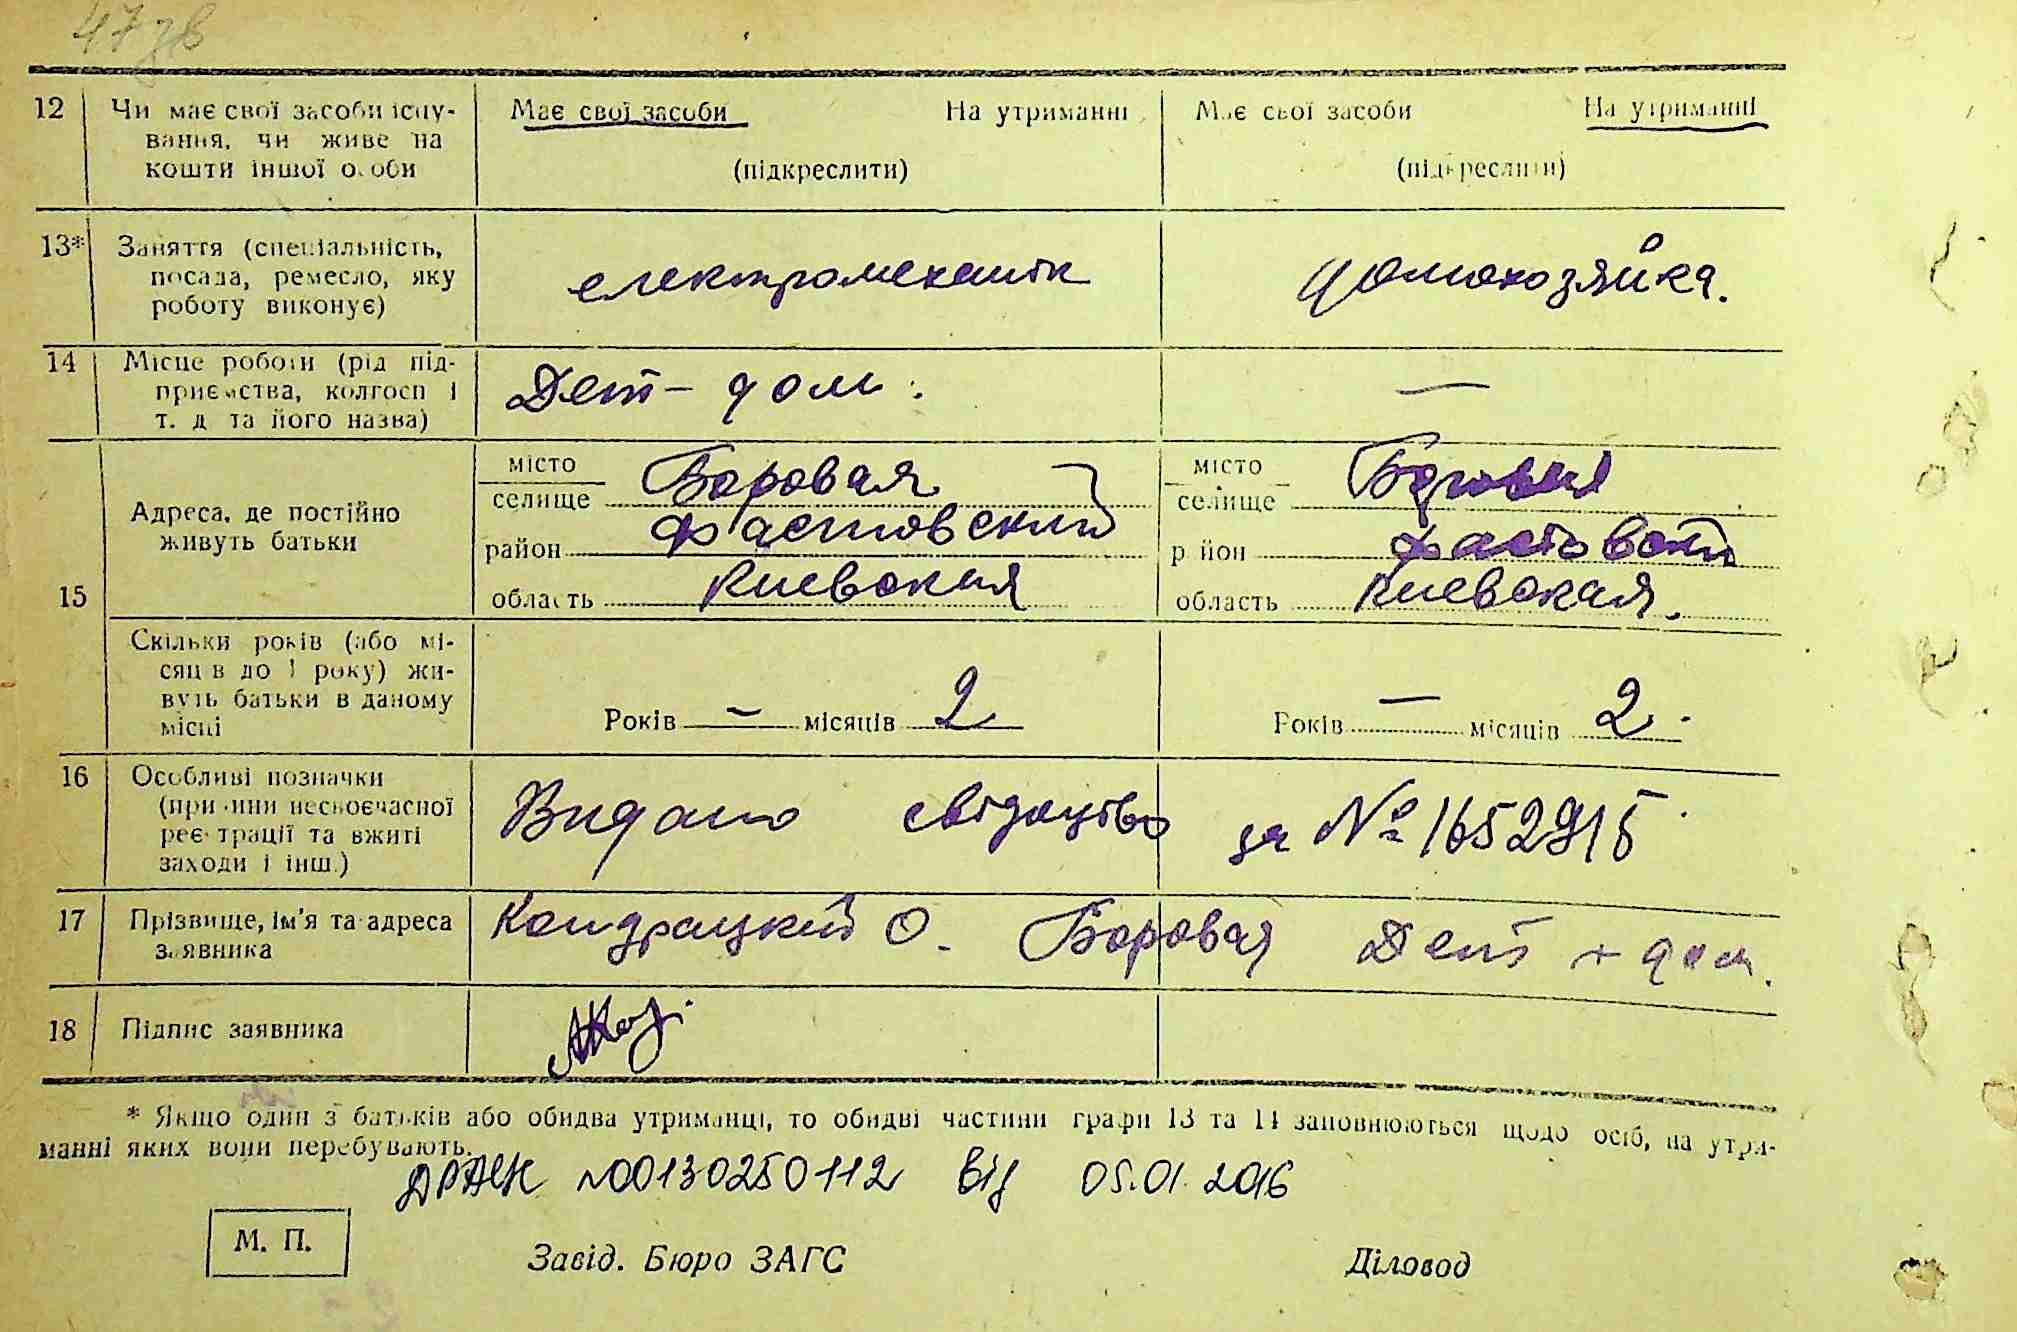 47зв
12 Чи має свої засоби існу-
вання, чи живе на
кошти іншої особи
Має свої засоби На утриманні
(підкреслити)
Має свої засоби На утриманні
(підкреслити)
13* Заняття (спеціальність,
посада, ремесло, яку
роботу виконує)
електромеханік
домохозяйка.
14 Місце роботи (рід під-
приємства, колгосп і
т. д. та його назва)
Дет-дом.
—
15
Адреса, де постійно
живуть батьки
місто
селище Боровая
район Фастовский
область Киевская
місто
селище Боровая
район Фастовский
область Киевская.
Скільки років (або мі-
сяців до 1 року) жи-
вуть батьки в даному
місці
Років — місяців 2
Років — місяців 2.
16 Особливі позначки
(причини несвоєчасної
реєстрації та вжиті
заходи і інш.)
Видано свідоцтво за № 1652915
17 Прізвище, ім'я та адреса
заявника
Кондрацкий О. Боровая Дет дом.
18 Підпис заявника
* Якщо один з батьків або обидва утриманці, то обидві частини графи 13 та 14 заповнюються щодо осіб, на утри-
манні яких вони перебувають.
ДРАЦС №00130250112 від 05.01.2016
М. П.
Завід. Бюро ЗАГС Діловод